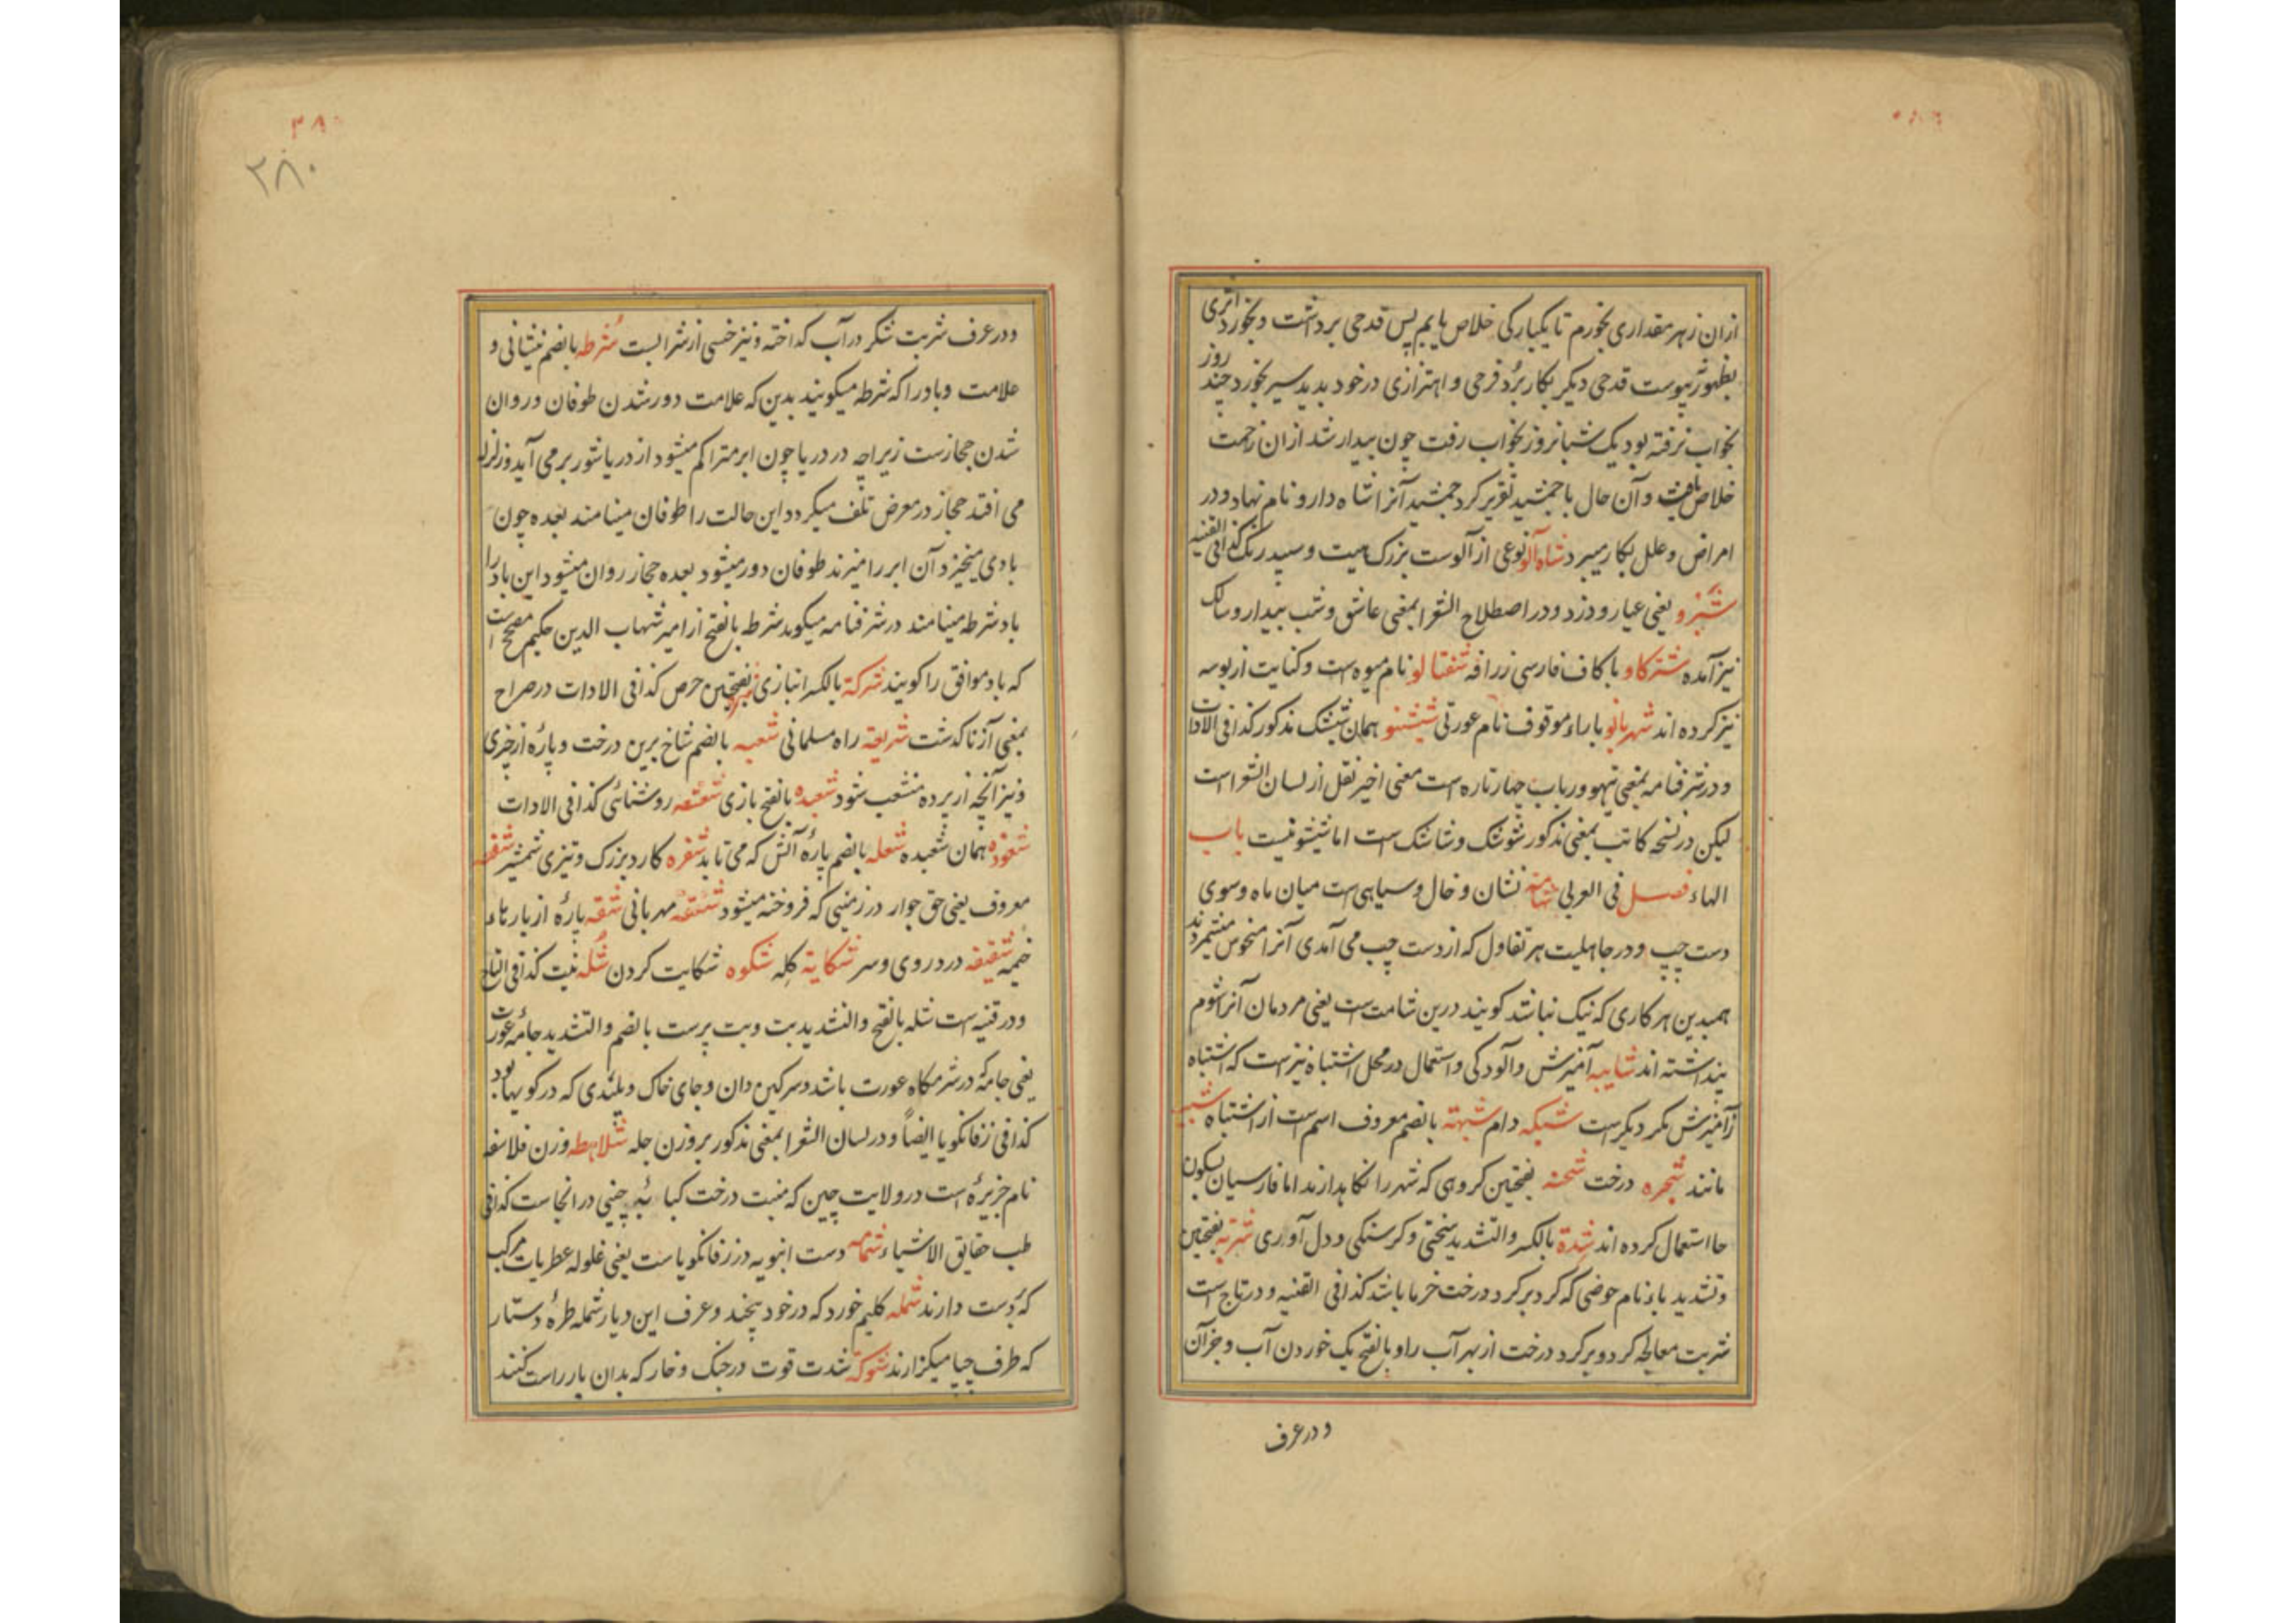 ازان زهر مقداری بخورم تا یکبارکی خلاص یابم پس قدحی برداشت و بخورد اثری
بظهور پیوست قدحی دیکر بکار برد فرحی و اهتزازی در خود بدید سیر بخورد چند روز
بخواب نرفته بود یک شبانروز بخواب رفت چون بیدار شد ازان زحمت
خلاص یافت و آن حال با جمشید تقریر کرد جمشید آنرا شاه دارو نام نهاد و در
امراض و علل بکار میبرد شاه آلو نوعی از آلوست بزرک هیت و سپید رنک کذا فی القنیه
شبرو یعنی عیار و دزد و در اصطلاح الشعرا بمعنی عاشق و شب بیدار و سالک
نیز آمده شترکاو با کاف فارسی زرافه شفتالو نام میوه است و کنایت از بوسه
نیز کرده اند شهربانو با راء موقوف نام عورتی شیشنو همان شیشک مذکور کذا فی الادات
و در شرفنامه بمعنی تیهو و رباب چهارتاره است معنی اخیر نقل از لسان الشعراست
لیکن در نسخه کاتب بمعنی مذکور شوشک و شاشک است اما شیشو نیست باب
الهاء فصل فی العربی شامة نشان و خال و سیاهی است میان ماه و سوی
دست چپ و در جاهلیت هر تفاول که از دست چپ می آمدی آنرا منحوس میشمردند
همبدین هر کاری که نیک نباشد کویند درین شامت است یعنی مردمان آنرا شوم
پنداشته اند شایبه آمیزش و آلودکی و استعمال در محل اشتباه نیز است که اشتباه
ز آمیزش مکر دیکر است شبکه دام شبهة بالضم معروف اسم است از اشتباه شبه
مانند شجره درخت شحنه بفتحین کروهی که شهر را نکاهدارند اما فارسیان بسکون
حا استعمال کرده اند شدة بالکسر و التشدید سختی و کرسنکی و دل آوری شربة بفتحین
و تشدید باء نام حوضی که کرد بر کرد درخت خرما باشد کذا فی القنیه و در تاج است
شربت معالجه کرد و بر کرد درخت از بهر آب را و بالفتح یک خوردن آب و جز آن
و در عرف
۳۸۰
۳۸۰
و در عرف شربت شکر در آب کداخته و نیز خسی از شرابست شرطه بالضم نیشانی و
علامت و باد را که شرطه میکویند بدین که علامت دور شدن طوفان و روان
شدن جهازست زیراچه در دریا چون ابر متراکم میشود از دریا شور بر می آید و زلزله
می افتد جهاز در معرض تلف میکردد این حالت را طوفان مینامند بعده چون
بادی میخیزد آن ابر را میزند طوفان دور میشود بعده جهاز روان میشود این باد را
باد شرطه مینامند در شرفنامه میکوید شرطه بالفتح از امیر شهاب الدین حکیم مصحح است
که باد موافق را کویند شرکة بالکسر انبازی بفتحین حرص کذا فی الادات در صراح
بمعنی آز ناکدشت شریعة راه مسلمانی شعبه بالضم شاخ برین درخت و پارهٔ از چیزی
و نیز آنچه از پرده منشعب شود شعبده بالفتح بازی شعشعه روشنائی کذا فی الادات
شعوذه همان شعبده شعله بالضم پارهٔ آتش که می تابد شفره کارد بزرک و تیزی شمشیر شفعه
معروف یعنی حق جوار در زمینی که فروخته میشود شفقه مهربانی شقه پارهٔ از پارهاء
خیمه شقیقه درد روی و سر شکایة کله شکوه شکایت کردن شله نیت کذا فی التاج
و در قنیه است شله بالفتح و التشدید بت و بت پرست بالضم و التشدید جامهٔ عورت
یعنی جامهٔ که در شرمکاه عورت باشد و سرکین دان و جای خاک و پلیدی که در کویها بود
کذا فی زفانکویا ایضاً و در لسان الشعرا بمعنی مذکور بروزن جله شلاهطه وزن فلاسفه
نام جزیرهٔ است در ولایت چین که منبت درخت کبابهٔ چینی در انجاست کذا فی
طب حقایق الاشیاء شمامه دست انبویه در زفانکویاست یعنی غلوله عطریات مرکب
که بدست دارند شمله کلیم خورد که در خود پیچند و عرف این دیار شمله طرهٔ دستار
که طرف چپا میکزارند شوکة شدت قوت در جنک و خار که بدان بار راست کنند